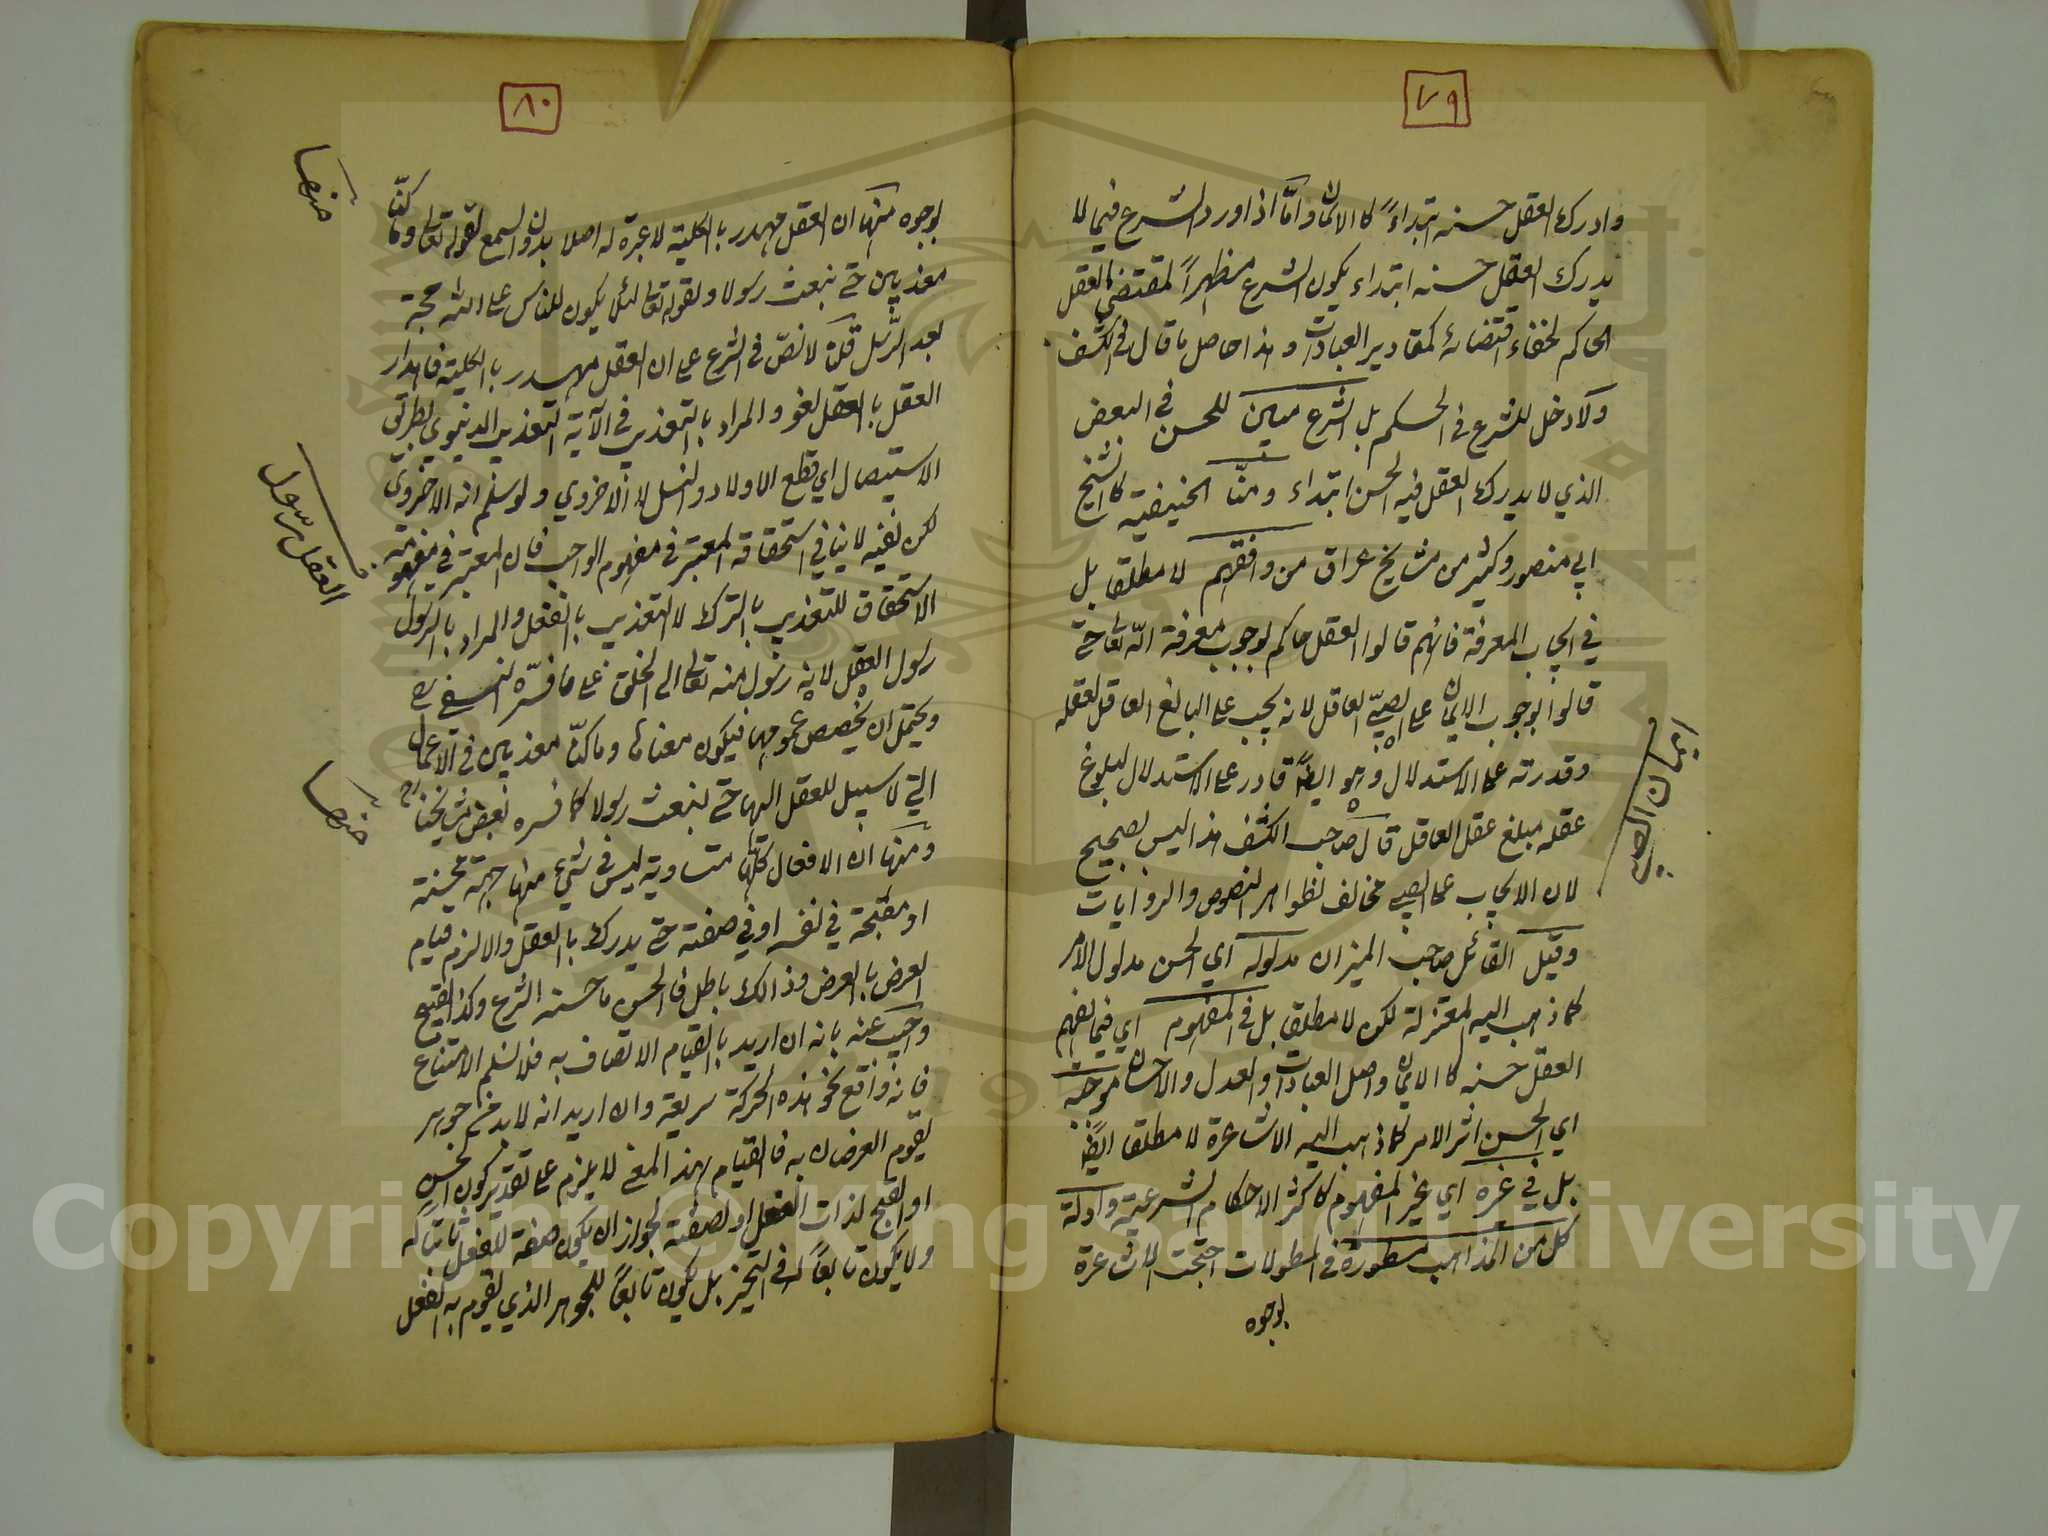 ٧٩
وادرك العقل حسنه ابتداءً كالايمان واما اذا ورد الشرع فيما لا
يدرك العقل حسنه ابتداء يكون الشرع مظهراً لمقتضى العقل
الحاكم لخفاء اقتضائه كمقادير العبادات وهذا حاصل ما قال في الكشف
ولا دخل للشرع في الحكم بل الشرع مبين للحسن في البعض
الذي لا يدرك العقل فيه الحسن ابتداء ومنّا الحنيفية كالشيخ
ابي منصور وكثير من مشايخ عراق من وافقهم لا مطلقا بل
في ايجاب المعرفة فانهم قالوا العقل حاكم لوجوب معرفة الله تعا حتى
قالوا بوجوب الايمان على الصبيّ العاقل لانه يجب على البالغ العاقل لعقله
وقدرته على الاستدلال وهو ايضاً قادر على الاستدلال لبلوغ
عقله مبلغ عقل العاقل قال صاحب الكشف هذا ليس بصحيح
لان الايجاب على الصبي مخالف لظواهر النصوص والروايات
وقيل القائل صاحب الميزان مدلوله اي الحسن مدلول الامر
كما ذهب اليه المعتزلة لكن لا مطلقا بل في المفهوم اي فيما يفهم
العقل حسنه كالايمان واصل العبادات والعدل والاحسان موجبه
اي الحسن اثر الامر كما ذهب اليه الاشاعرة لا مطلقا ايضاً
بل في غيره اي غير المفهوم كاكثر الاحكام الشرعية وادلة
كل من المذاهب مسطورة في المطولات احتجت الاشاعرة
بوجوه
ايمان الصبي
٨٠
بوجوه منها ان العقل مهدر بالكلية لا عبرة له اصلا بدون السمع لقوله تعالى وما كنّا
معذبين حتى نبعث رسولا ولقوله تعا لئلا يكون للناس على الله حجة
بعد الرسل قلت لا نصّ في الشرع على ان العقل مهدر بالكلية فاهدار
العقل بالعقل لغو والمراد بالتعذيب في الآية التعذيب الدنيوي بطريق
الاستيصال اي قطع الاولاد والنسل لا الاخروي ولو سلم انه الاخروي
لكن نفيه لا ينافي استحقاقه المعتبر في مفهوم الواجب فان المعتبر في مفهومه
الاستحقاق للتعذيب بالترك لا التعذيب بالفعل والمراد بالرسول
رسول العقل لانه رسول منه تعالى الى الخلق على ما فسّره النسفي
ويحتمل ان يخصص عمومها فيكون معناها وما كنّا معذبين في الاعمال
التي لا سبيل للعقل اليها حتى نبعث رسولا كما فسره بعض مشايخنا
ومنها ان الافعال كلها متساوية ليس في شيء منها جهة محسنة
او مقبحة في نفسه او في صفته حتى يدرك بالعقل والا لزم قيام
العرض بالعرض وذالك باطل فالحسن ما حسنه الشرع وكذا القبيح
واجيب عنه بانه ان اريد بالقيام الاتصاف به فلا نسلم الامتناع
فانه واقع نحو هذه الحركة سريعة وان اريد انه لا بد من جوهر
يقوم العرضان به فالقيام بهذ المعنى لا يلزم على تقدير كون الحسن
او القبح لذات الفعل او لصفته لجواز ان يكون صفة للفعل ثابتا له
ولا يكون تابعاً له في التحيز بل يكون تابعاً للجوهر الذي يقوم به الفعل
منها
العقل رسول
منها
Copyright © King Saud University